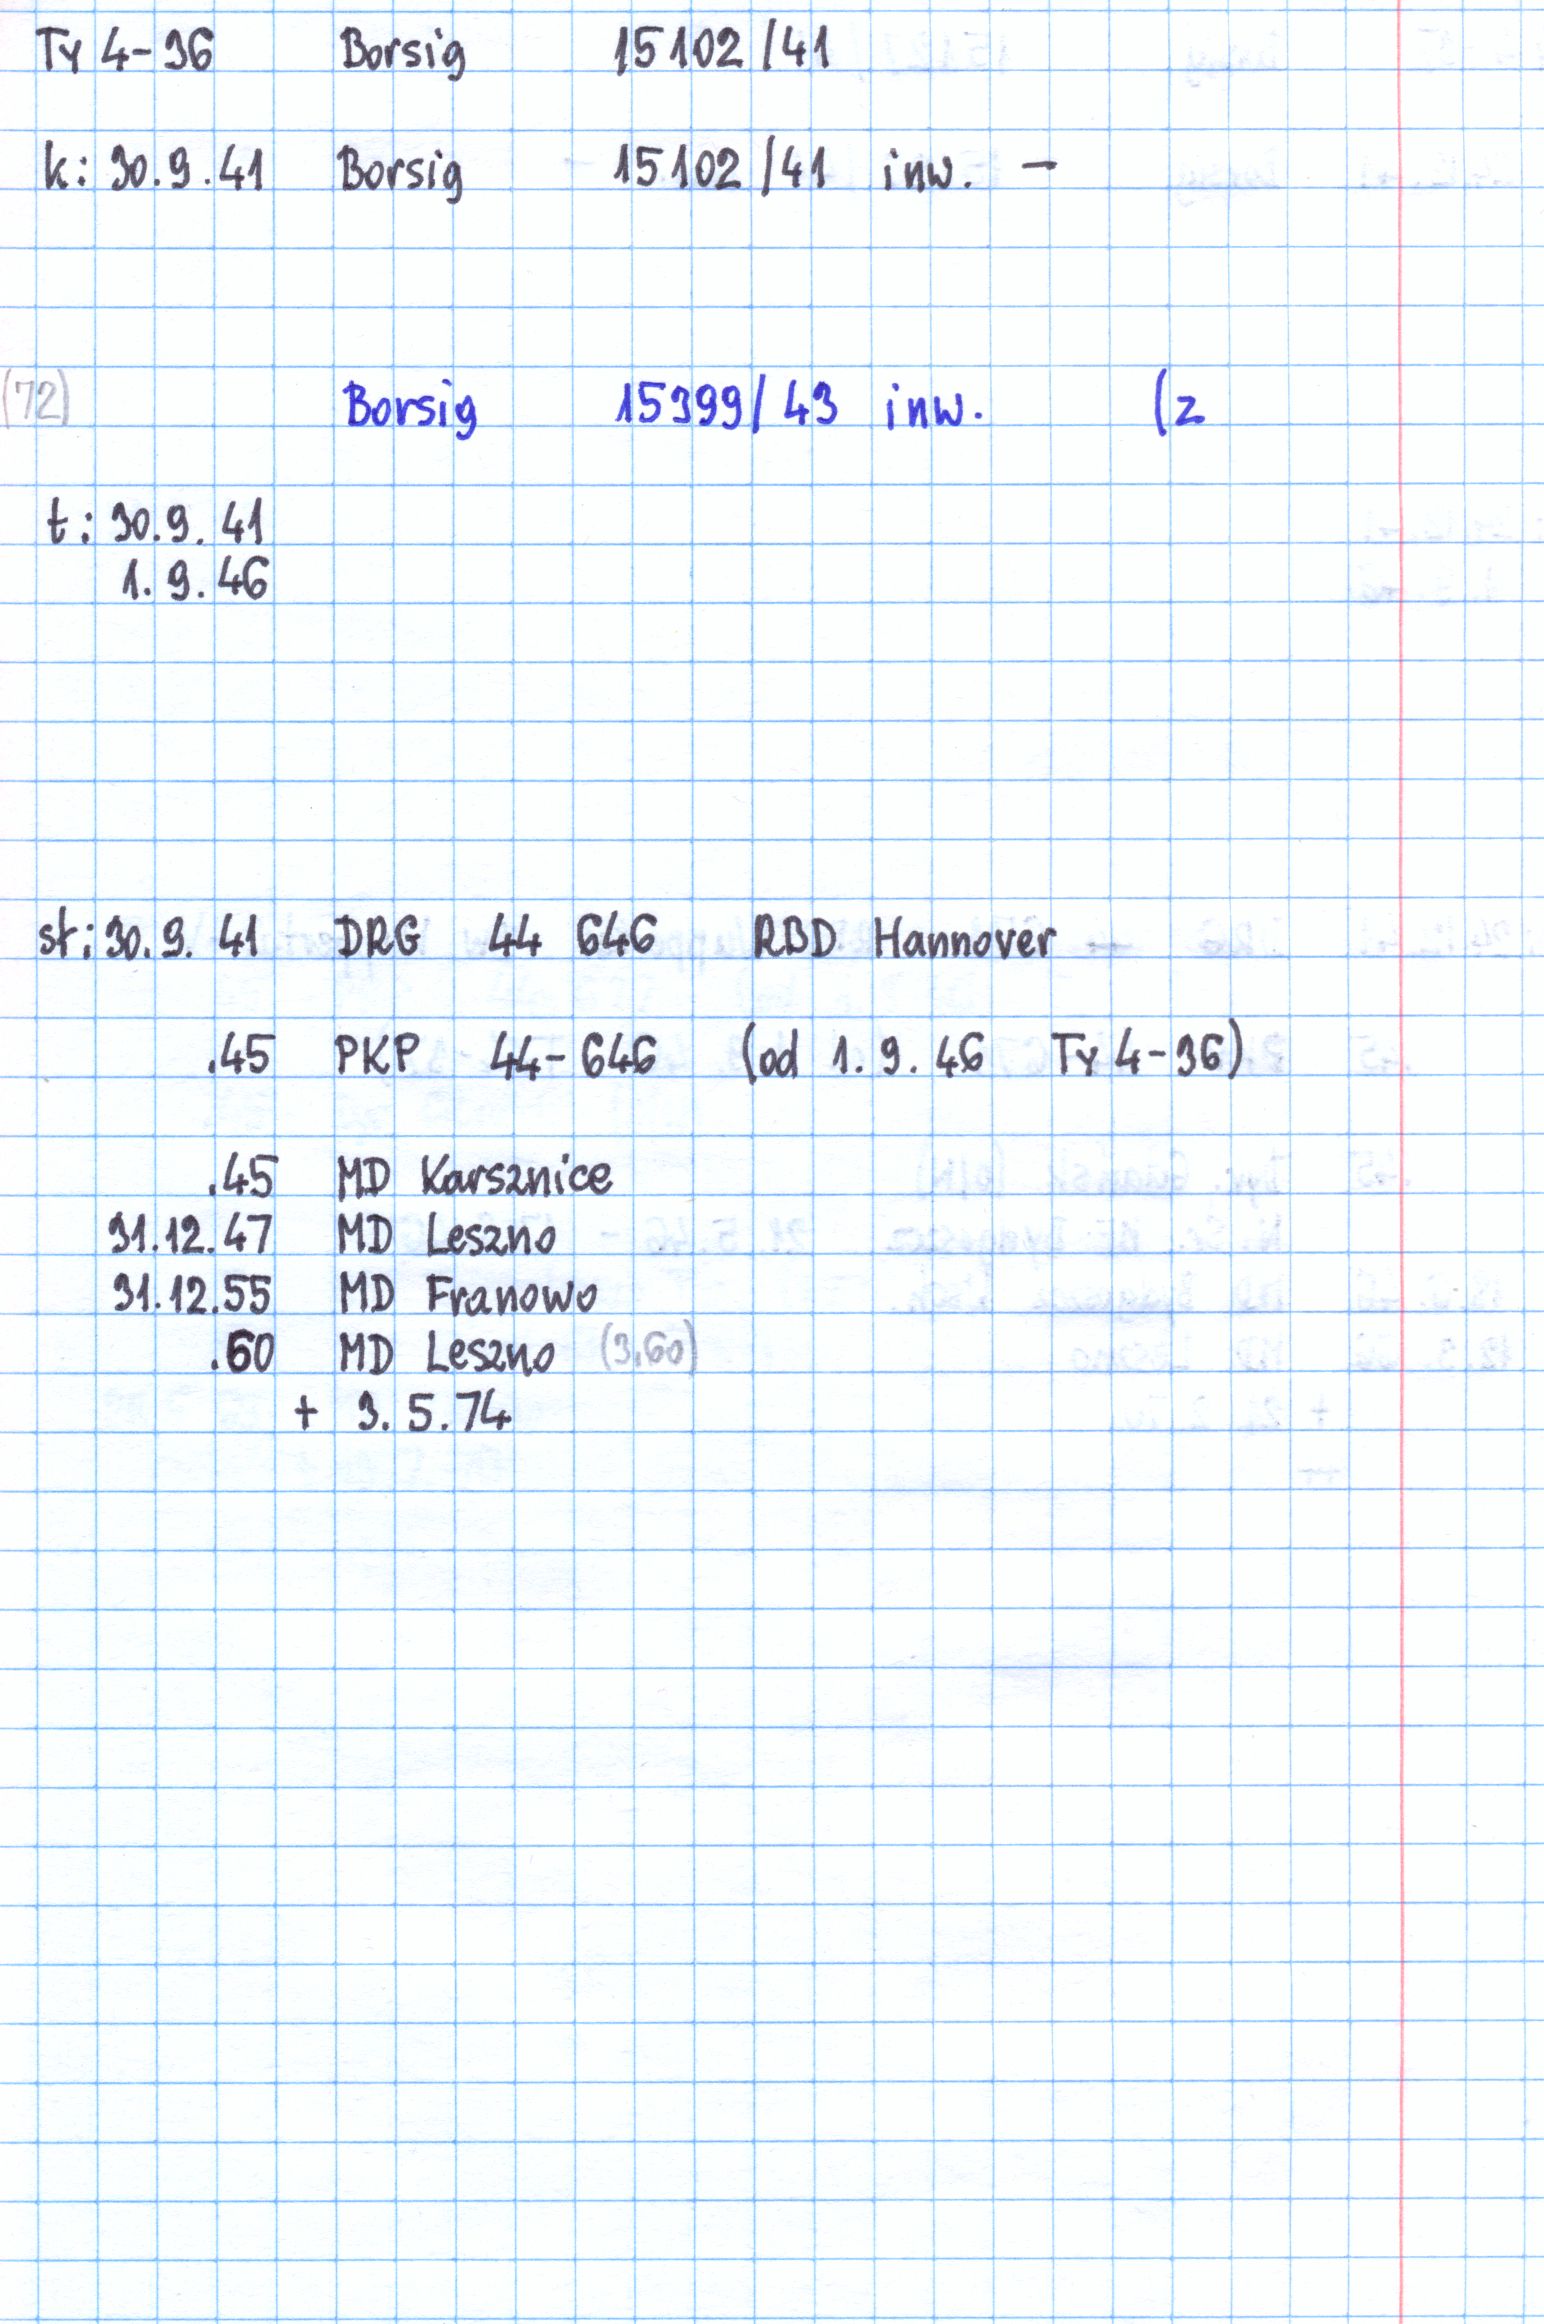 Ty 4-36 Borsig 15102/41
k: 30.9.41 Borsig 15102/41 inw. -
(72) Borsig 15399/43 inw. (z
t: 30.9.41
1.9.46
st: 30.9.41 DRG 44 646 RBD Hannover
.45 PKP 44-646 (od 1.9.46 Ty 4-36)
.45 MD Karsznice
31.12.47 MD Leszno
31.12.55 MD Franowo
.60 MD Leszno (3.60)
+ 3.5.74